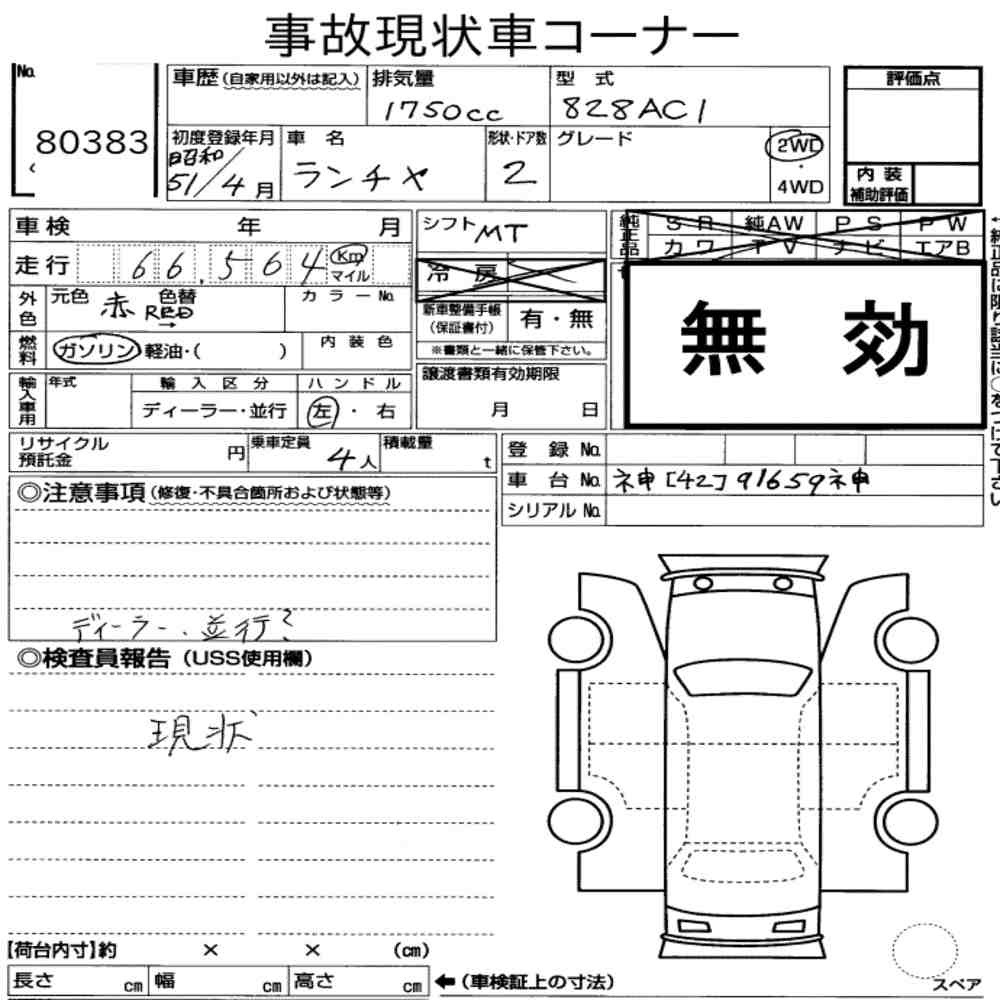 事故現状車コーナー
No. 80383
車歴(自家用以外は記入)
排気量 1750cc
型式 828AC1
評価点
初度登録年月 昭和51/4月
車名 ランチャ
形状・ドア数 2
グレード
2WD
・
4WD
内装
補助評価
車検 年 月
シフト MT
純正品
SR 純AW PS PW
カワ TV ナビ エアB
走行 66,564 Km
マイル
冷房
外色
元色 赤 色替
RED→
カラーNo.
新車整備手帳
(保証書付)
有・無
※書類と一緒に保管下さい。
無効
燃料
ガソリン・軽油・( )
内装色
輸入車用
年式
輸入区分
ハンドル
ディーラー・並行
左・右
譲渡書類有効期限
月 日
リサイクル
預託金
円
乗車定員 4人
積載量 t
登録No.
車台No. ネ申[42]91659ネ申
シリアルNo.
◎注意事項(修復・不具合箇所および状態等)
ディーラー、並行?
◎検査員報告(USS使用欄)
現状
【荷台内寸】約 × × (cm)
長さ cm 幅 cm 高さ cm
←(車検証上の寸法)
スペア